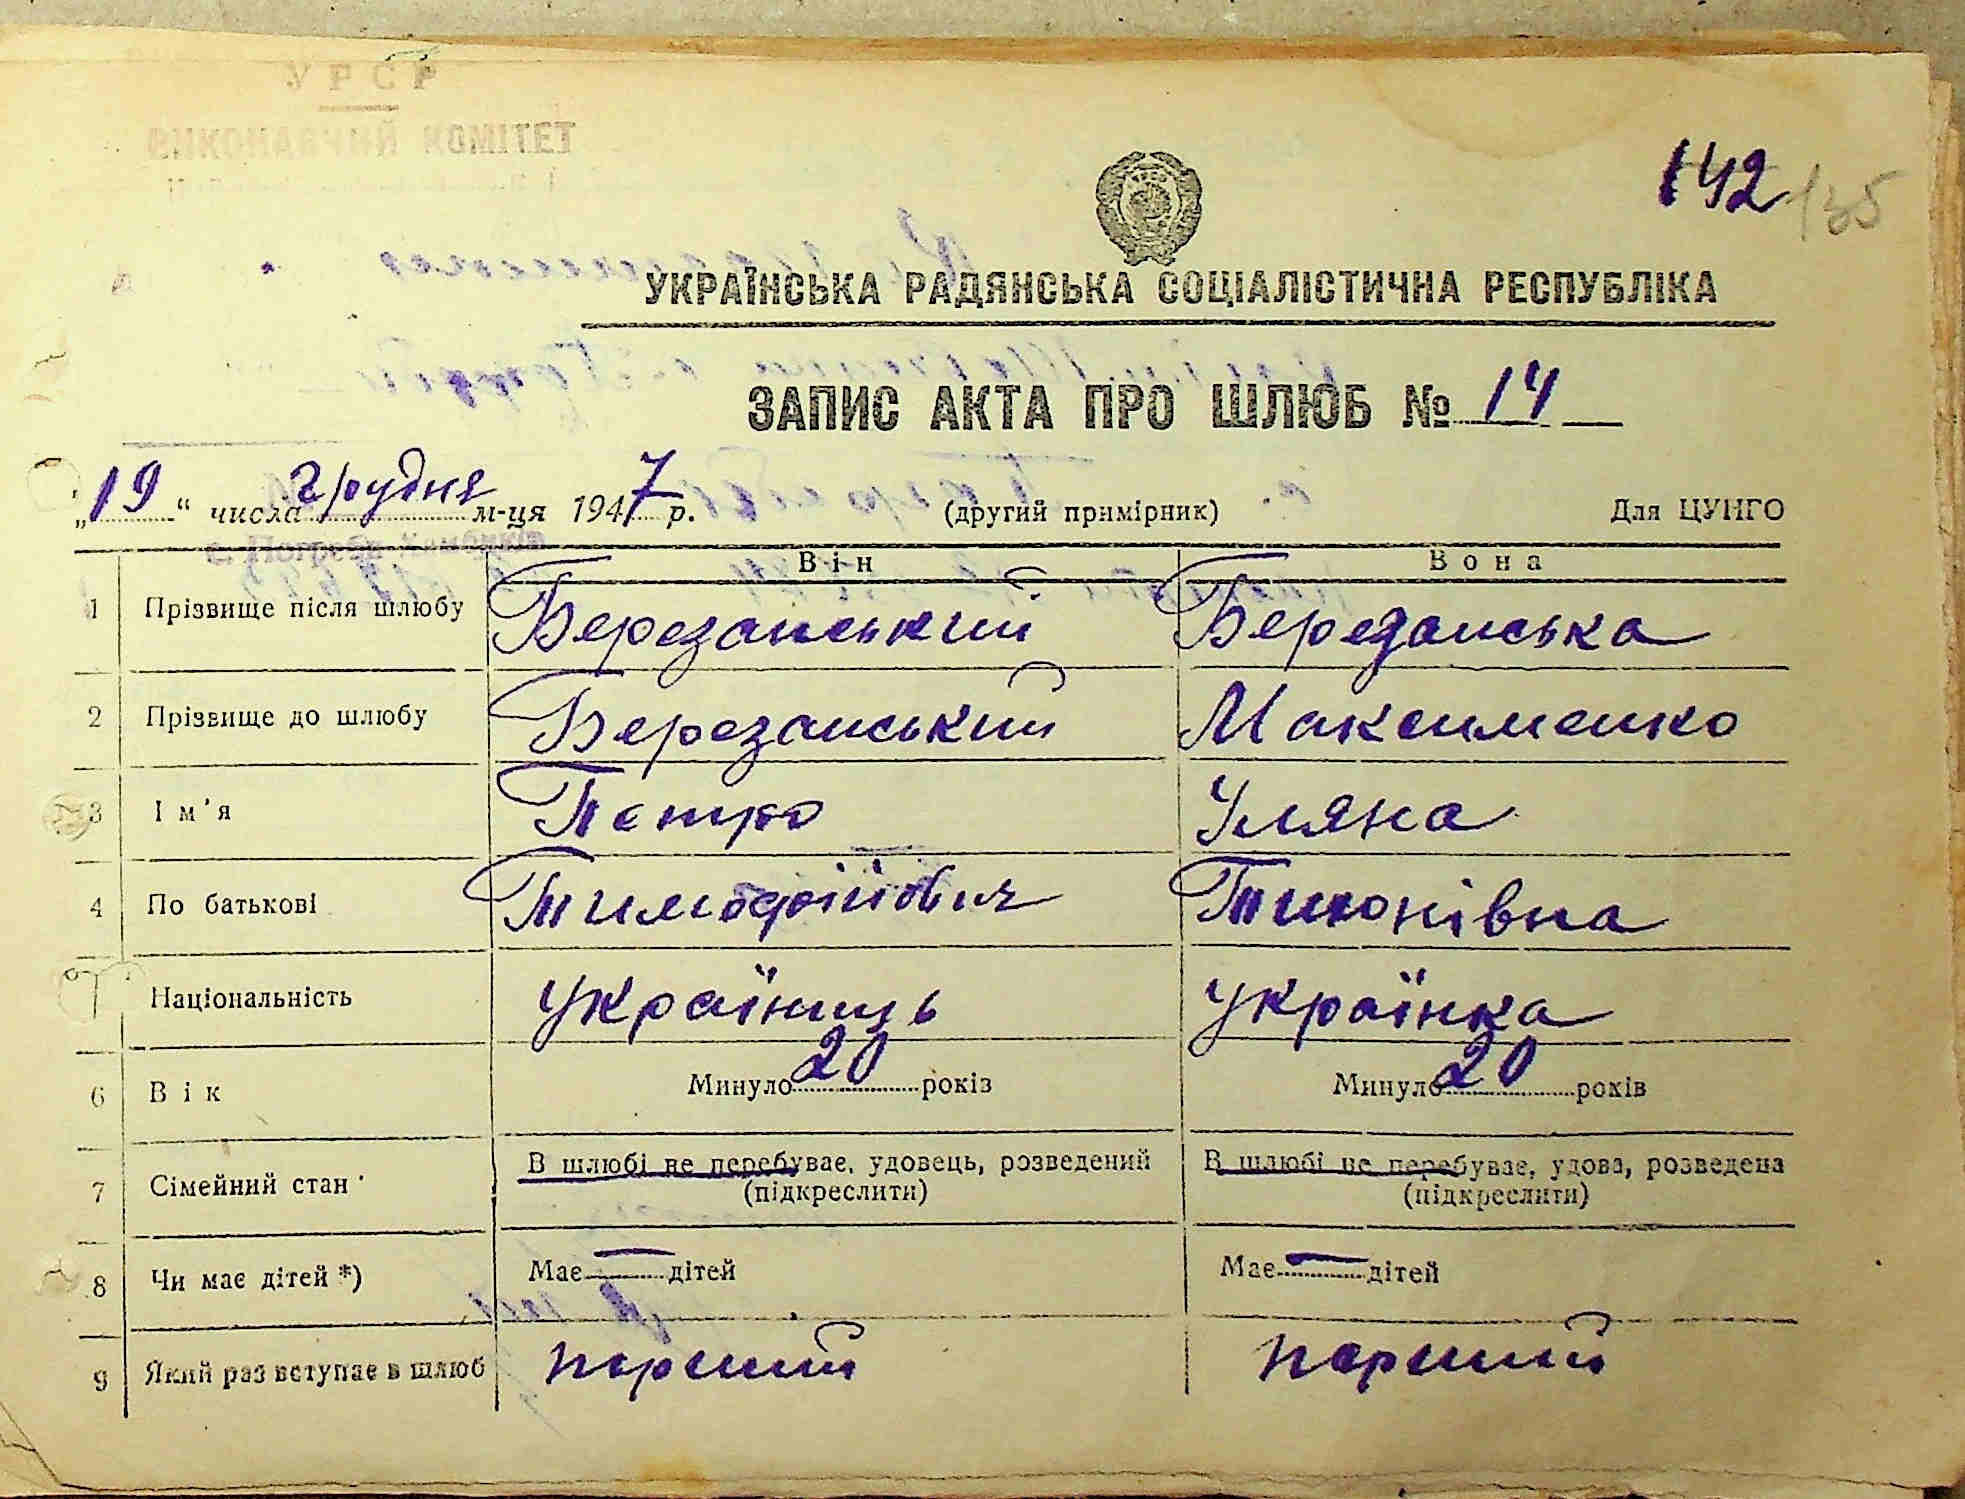 УРСР
ВИКОНАВЧИЙ КОМІТЕТ
142 /135
УКРАЇНСЬКА РАДЯНСЬКА СОЦІАЛІСТИЧНА РЕСПУБЛІКА
ЗАПИС АКТА ПРО ШЛЮБ № 14
„19“ числа грудня м-ця 1947 р. (другий примірник) Для ЦУНГО
с. Погреби
Він Вона
1 Прізвище після шлюбу Березанський Березанська
2 Прізвище до шлюбу Березанський Максименко
3 Ім'я Петро Уляна
4 По батькові Тимофійович Тихонівна
Національність Українць Українка
6 Вік Минуло 20 років Минуло 20 років
7 Сімейний стан В шлюбі не перебуває, удовець, розведений В шлюбі не перебуває, удова, розведена
(підкреслити) (підкреслити)
8 Чи має дітей *) Має — дітей Має — дітей
9 Який раз вступає в шлюб перший перший